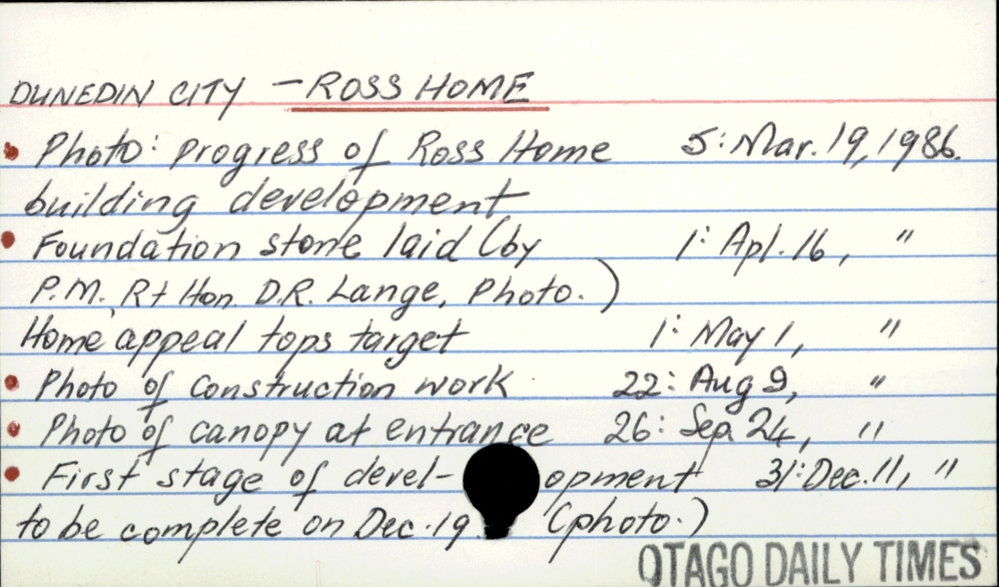 DUNEDIN CITY — ROSS HOME
• Photo: progress of Ross Home 5: Mar. 19, 1986.
building development
• Foundation stone laid (by 1: Apl. 16, "
P.M. Rt Hon. D.R. Lange, Photo.)
Home appeal tops target 1: May 1, "
• Photo of construction work 22: Aug 9, "
• Photo of canopy at entrance 26: Sep. 24, "
• First stage of devel- opment 31: Dec. 11, "
to be complete on Dec. 19. (photo.)
OTAGO DAILY TIMES